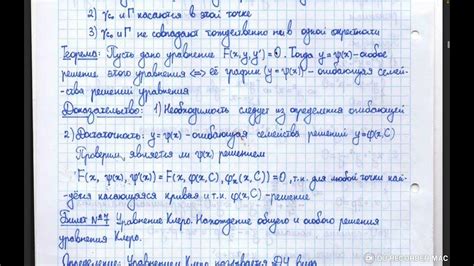 2) γc₀ и Γ касаются в этой точке
3) γc₀ и Γ не совпадают тождественно ни в одной окрестности
Теорема: Пусть дано уравнение F(x,y,y')=0. Тогда y=ψ(x)-особое
решение этого уравнения <=> её график (y=ψ(x)) - огибающая семей-
ства решений уравнения
Доказательство: 1) Необходимость следует из определения огибающей
2) Достаточность: y=ψ(x) - огибающая семейства решений y=φ(x,C)
Проверим, является ли ψ(x) решением
F(x, ψ(x), ψ'(x)) = F(x, φ(x,C), φ'ₓ(x,C)) = 0, т.к. для любой точки най-
дётся касающаяся кривая и т.к. φ(x,C) - решение
Билет №27 Уравнение Клеро. Нахождение общего и особого решения
уравнения Клеро.
Определение: Уравнением Клеро называется ДУ вида